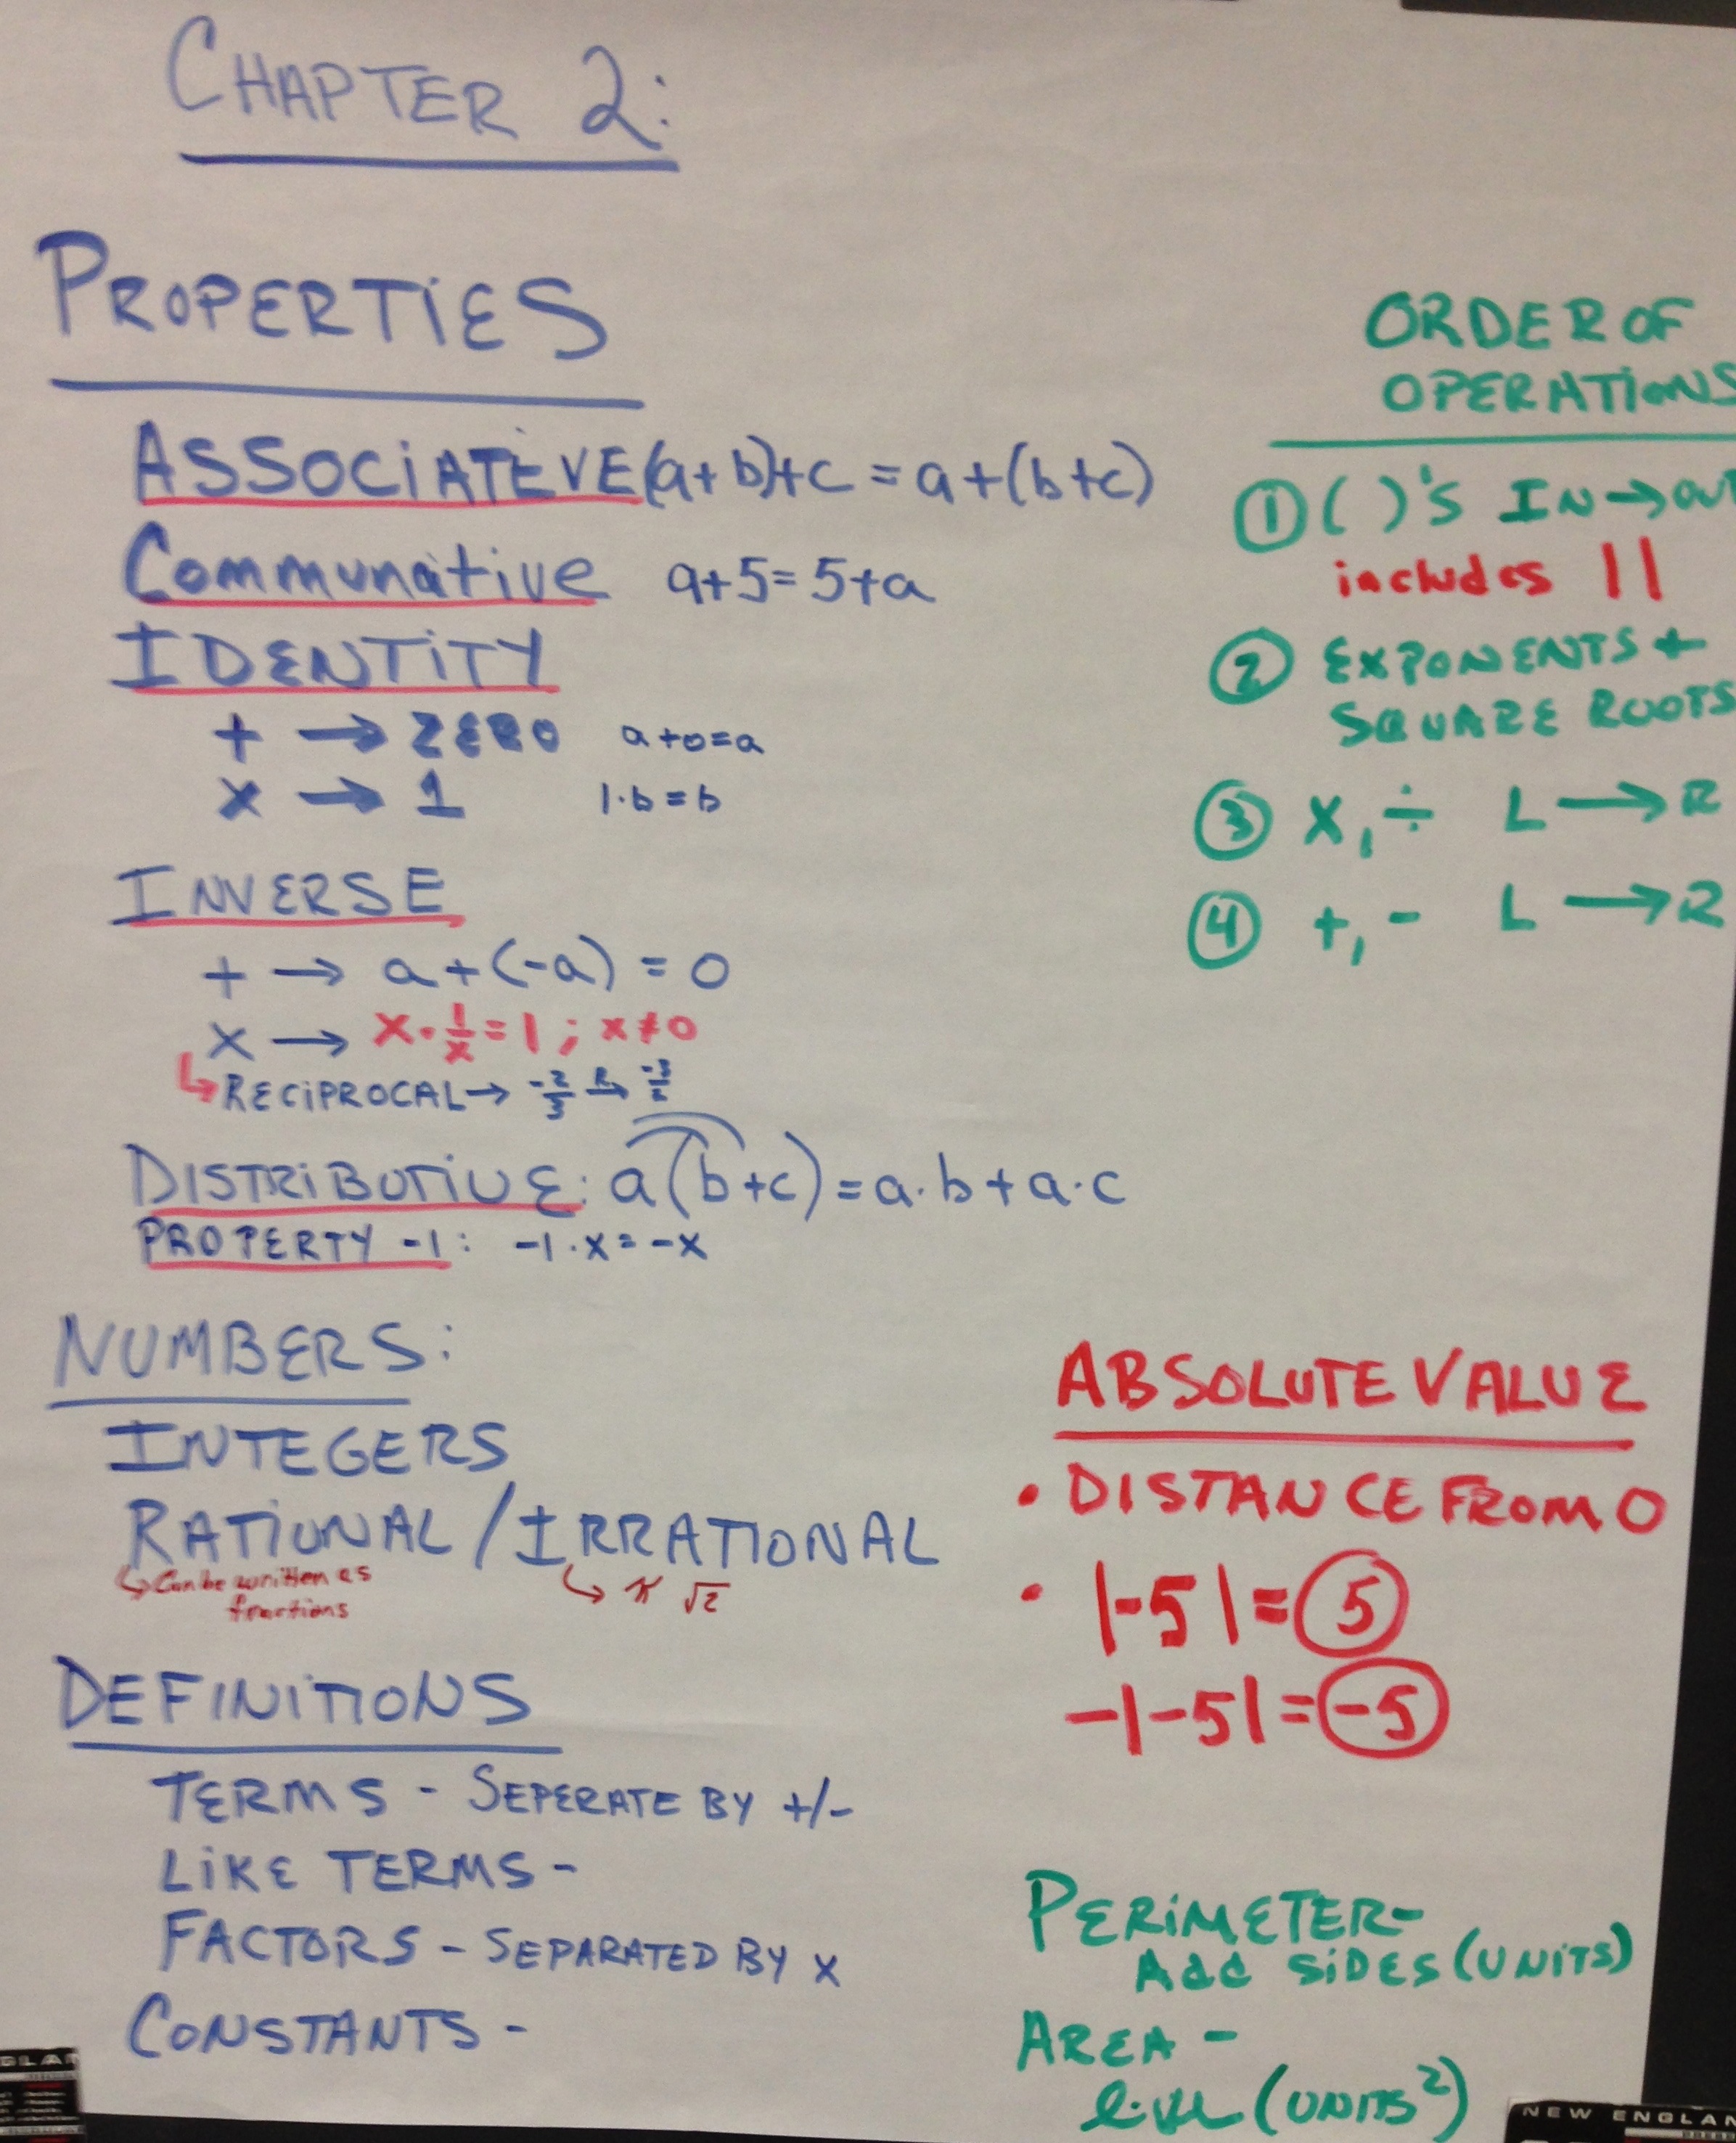 CHAPTER 2:
PROPERTIES
ASSOCIATEVE (a+b)+c = a+(b+c)
Communative a+5=5+a
IDENTITY
+ → ZERO a+0=a
x → 1 1·b=b
INVERSE
+ → a+(-a) = 0
x → x·1/x=1; x≠0
↳ RECIPROCAL → -2/3 R→ -3/2
DISTRIBUTIVE: a(b+c)=a·b+a·c
PROPERTY -1: -1·x=-x
NUMBERS:
INTEGERS
RATIONAL/IRRATIONAL
↳ Can be written as
fractions
↳ π √2
DEFINITIONS
TERMS - SEPERATE BY +/-
LIKE TERMS -
FACTORS - SEPARATED BY x
CONSTANTS -
ORDER OF
OPERATIONS
① ( )'s IN → OUT
includes ||
② EXPONENTS +
SQUARE ROOTS
③ x, ÷ L → R
④ +, - L → R
ABSOLUTE VALUE
• DISTANCE FROM 0
• |-5| = 5
-|-5| = -5
PERIMETER-
Add SIDES (UNITS)
AREA -
(UNITS²)
NEW ENGLAN